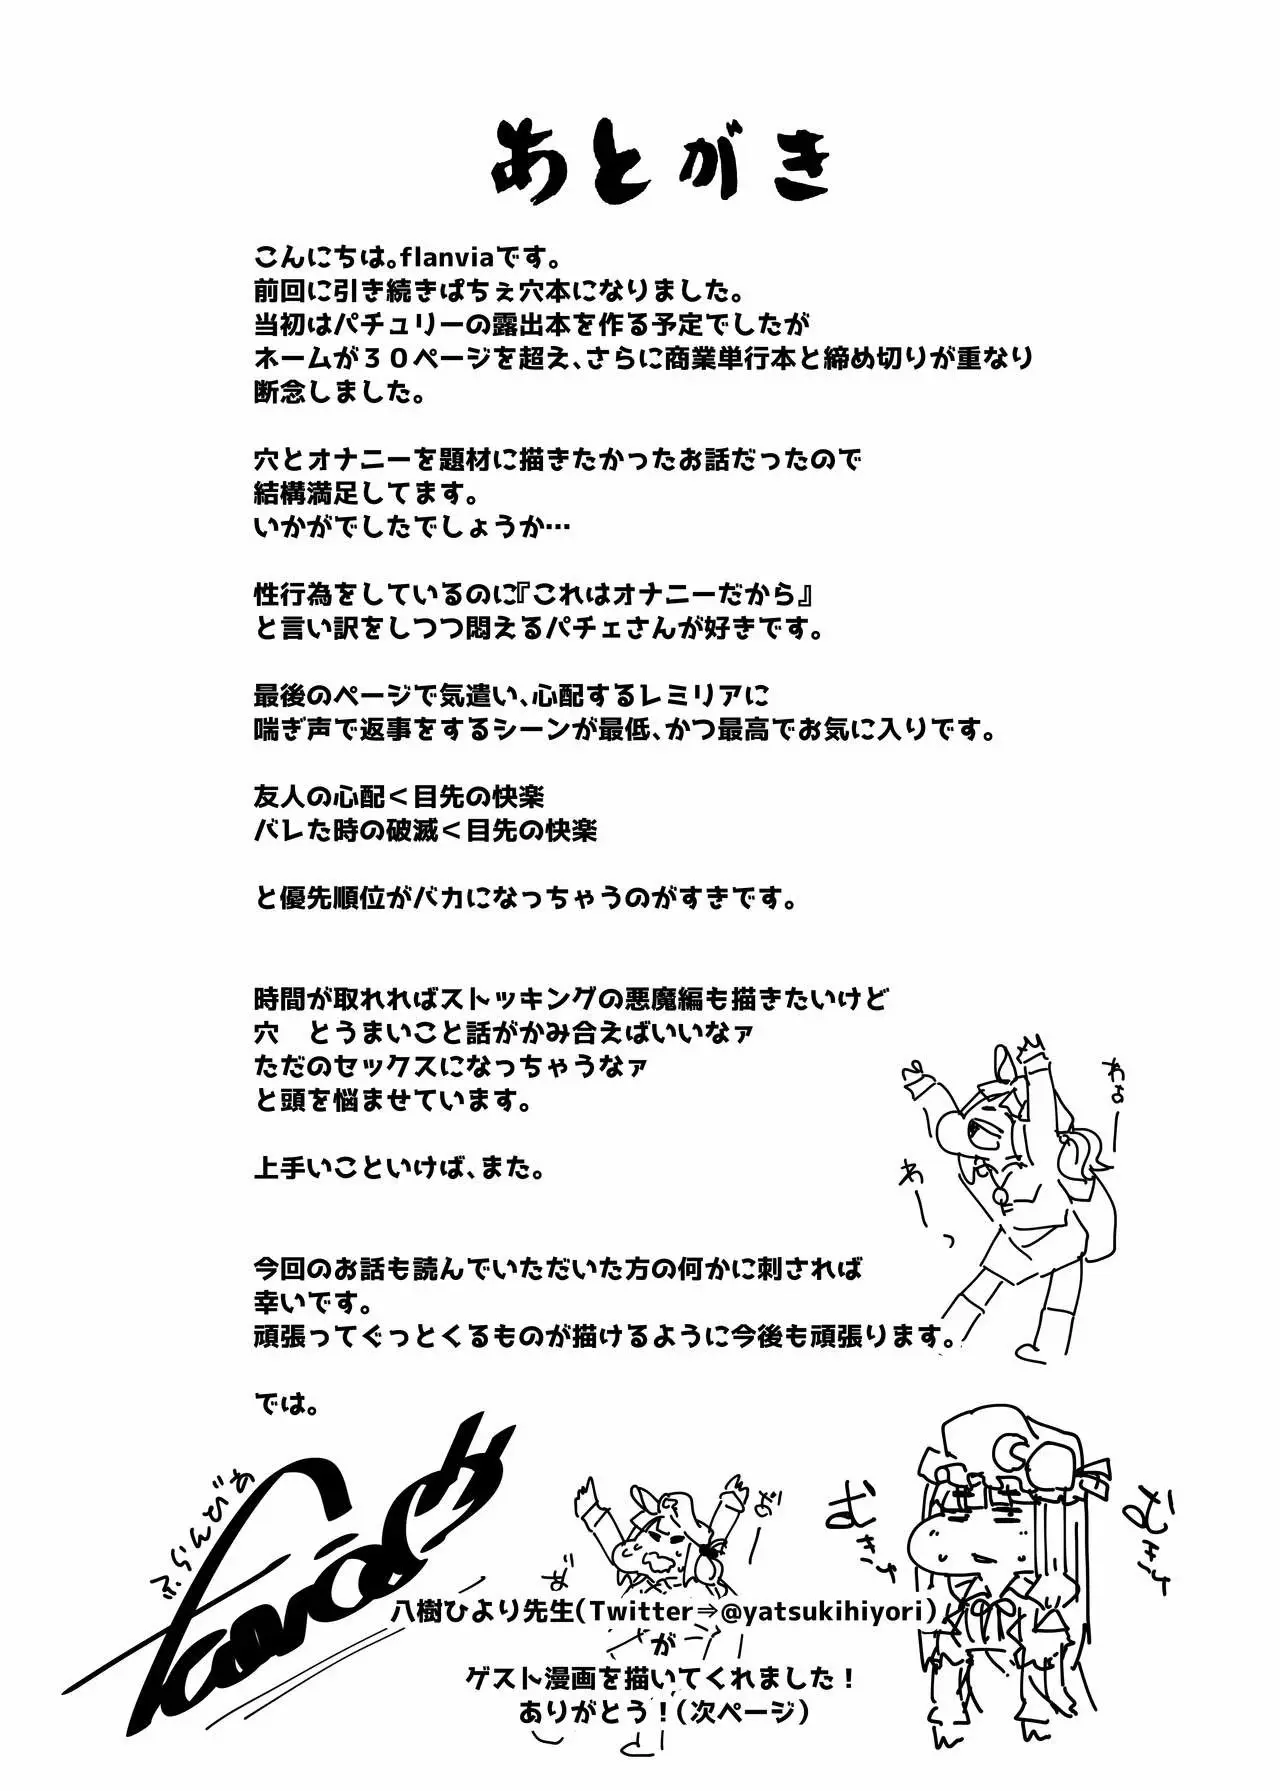 あとがき
こんにちは。flanviaです。
前回に引き続きぱちぇ穴本になりました。
当初はパチュリーの露出本を作る予定でしたが
ネームが３０ページを超え、さらに商業単行本と締め切りが重なり
断念しました。
穴とオナニーを題材に描きたかったお話だったので
結構満足してます。
いかがでしたでしょうか…
性行為をしているのに『これはオナニーだから』
と言い訳をしつつ悶えるパチェさんが好きです。
最後のページで気遣い、心配するレミリアに
喘ぎ声で返事をするシーンが最低、かつ最高でお気に入りです。
友人の心配＜目先の快楽
バレた時の破滅＜目先の快楽
と優先順位がバカになっちゃうのがすきです。
時間が取れればストッキングの悪魔編も描きたいけど
穴　とうまいこと話がかみ合えばいいなァ
ただのセックスになっちゃうなァ
と頭を悩ませています。
上手いこといけば、また。
今回のお話も読んでいただいた方の何かに刺されば
幸いです。
頑張ってぐっとくるものが描けるように今後も頑張ります。
では。
わぁー
わーっ
ふらんびあ
むきゅ
むきゅ
八樹ひより先生（Twitter⇒@yatsukihiyori）
が
ゲスト漫画を描いてくれました！
ありがとう！（次ページ）